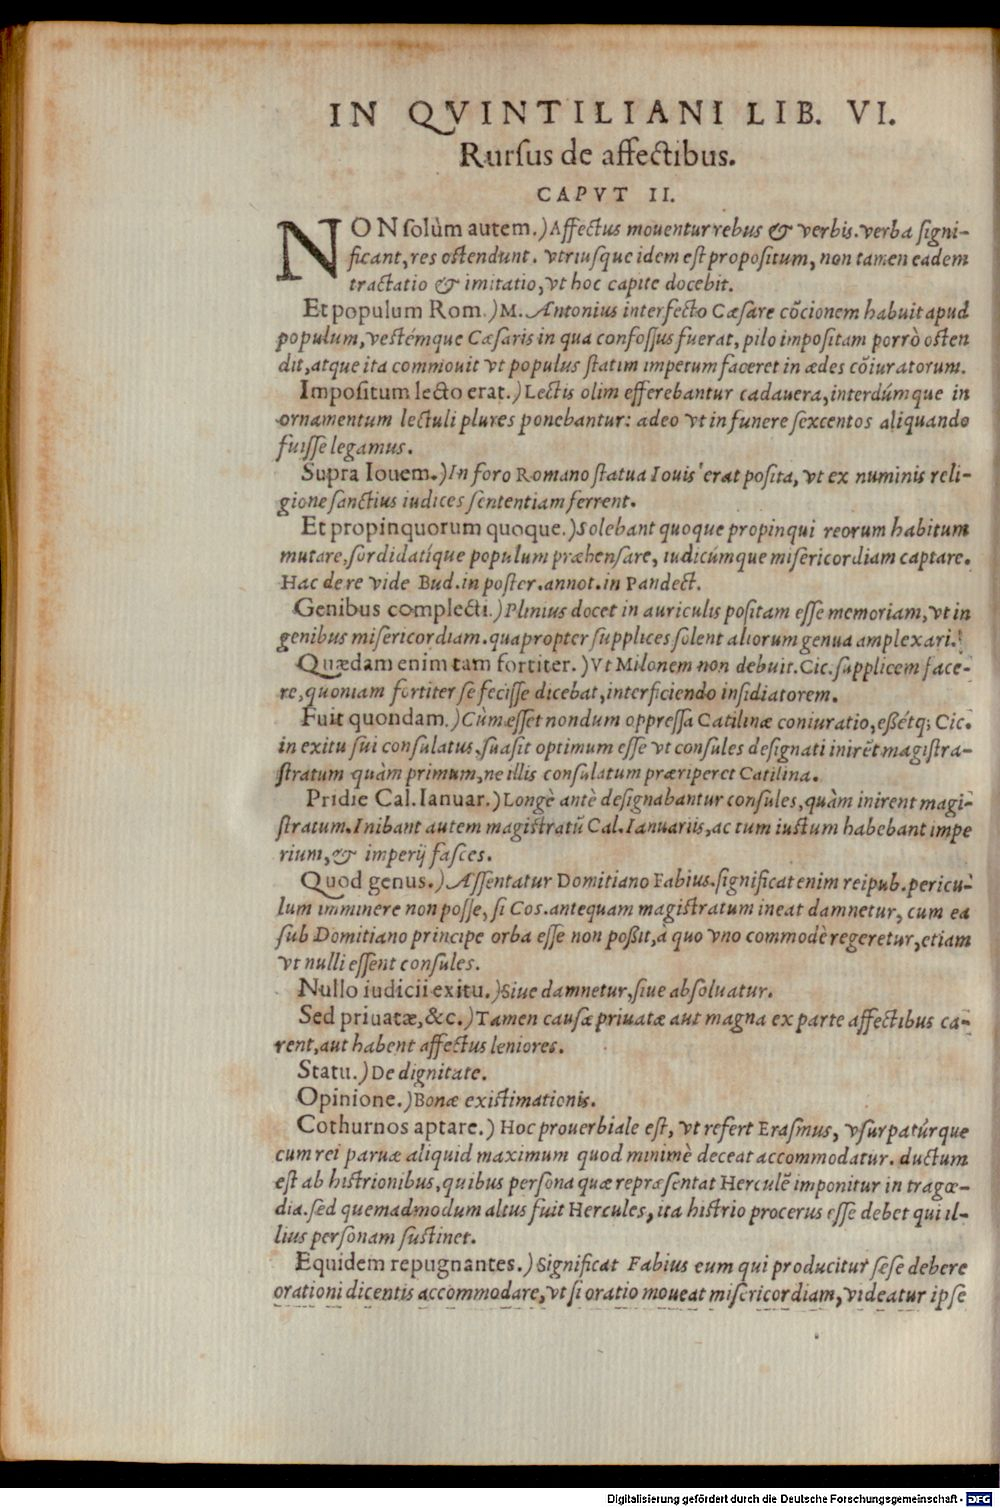 IN QVINTILIANI LIB. VI.
Rursus de affectibus.
CAPVT II.
NON solùm autem.) Affectus mouentur rebus & verbis. verba signi-
ficant, res ostendunt. vtriusque idem est propositum, non tamen eadem
tractatio & imitatio, vt hoc capite docebit.
Et populum Rom.) M. Antonius interfecto Cæsare cõcionem habuit apud
populum, vestémque Cæsaris in qua confossus fuerat, pilo impositam porrò osten
dit, atque ita commouit vt populus statim impetum faceret in ædes cõiuratorum.
Impositum lecto erat.) Lectis olim efferebantur cadauera, interdúmque in
ornamentum lectuli plures ponebantur: adeo vt in funere sexcentos aliquando
fuisse legamus.
Supra Iouem.) In foro Romano statua Iouis erat posita, vt ex numinis reli-
gione sanctius iudices sententiam ferrent.
Et propinquorum quoque.) Solebant quoque propinqui reorum habitum
mutare, sordidatíque populum præhensare, iudicúmque misericordiam captare.
Hac de re vide Bud. in poster. annot. in Pandect.
Genibus complecti.) Plinius docet in auriculis positam esse memoriam, vt in
genibus misericordiam. quapropter supplices solent aliorum genua amplexari.
Quædam enim tam fortiter.) Vt Milonem non debuit. Cic. supplicem face-
re, quoniam fortiter se fecisse dicebat, interficiendo insidiatorem.
Fuit quondam.) Cùm esset nondum oppressa Catilinæ coniuratio, eßétq; Cic.
in exitu sui consulatus, suasit optimum esse vt consules designati inirẽt magistra-
stratum quàm primum, ne illis consulatum præriperet Catilina.
Pridie Cal. Ianuar.) Longè antè designabantur consules, quàm inirent magi-
stratum. Inibant autem magistratũ Cal. Ianuariis, ac tum iustum habebant impe
rium, & imperij fasces.
Quod genus.) Assentatur Domitiano Fabius. significat enim reipub. pericu-
lum imminere non posse, si Cos. antequam magistratum ineat damnetur, cum ea
sub Domitiano principe orba esse non poßit, à quo vno commodè regeretur, etiam
vt nulli essent consules.
Nullo iudicii exitu.) Siue damnetur, siue absoluatur.
Sed priuatæ, &c.) Tamen causæ priuatæ aut magna ex parte affectibus ca-
rent, aut habent affectus leniores.
Statu.) De dignitate.
Opinione.) Bonæ existimationis.
Cothurnos aptare.) Hoc prouerbiale est, vt refert Erasmus, vsurpatúrque
cum rei paruæ aliquid maximum quod minimè deceat accommodatur. ductum
est ab histrionibus, quibus persona quæ repræsentat Herculẽ imponitur in tragœ-
dia. sed quemadmodum altus fuit Hercules, ita histrio procerus esse debet qui il-
lius personam sustinet.
Equidem repugnantes.) Significat Fabius eum qui producitur sese debere
orationi dicentis accommodare, vt si oratio moueat misericordiam, videatur ipse
Digitalisierung gefördert durch die Deutsche Forschungsgemeinschaft - DFG